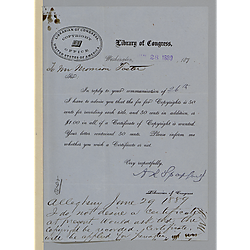 LIBRARIAN OF CONGRESS
COPYRIGHT
OFFICE
UNITED STATES OF AMERICA
Library of Congress,
Washington, 188
To Mr Morrison Foster
Sir:
In reply to your communication of 26th
I have to advise you that the fee for Copyright is 50
cents for recording each title and 50 cents in addition, or
$1.00 in all, if a Certificate of Copyright is wanted.
Your letter contained 50 cents. Please inform me
whether you wish a Certificate or not.
Very respectfully,
A R Spofford
Librarian of Congress
Allegheny June 29 1889
I do not desire a Certificate
at present. Would ask that the
Copyright be recorded. Certificate
will be applied for